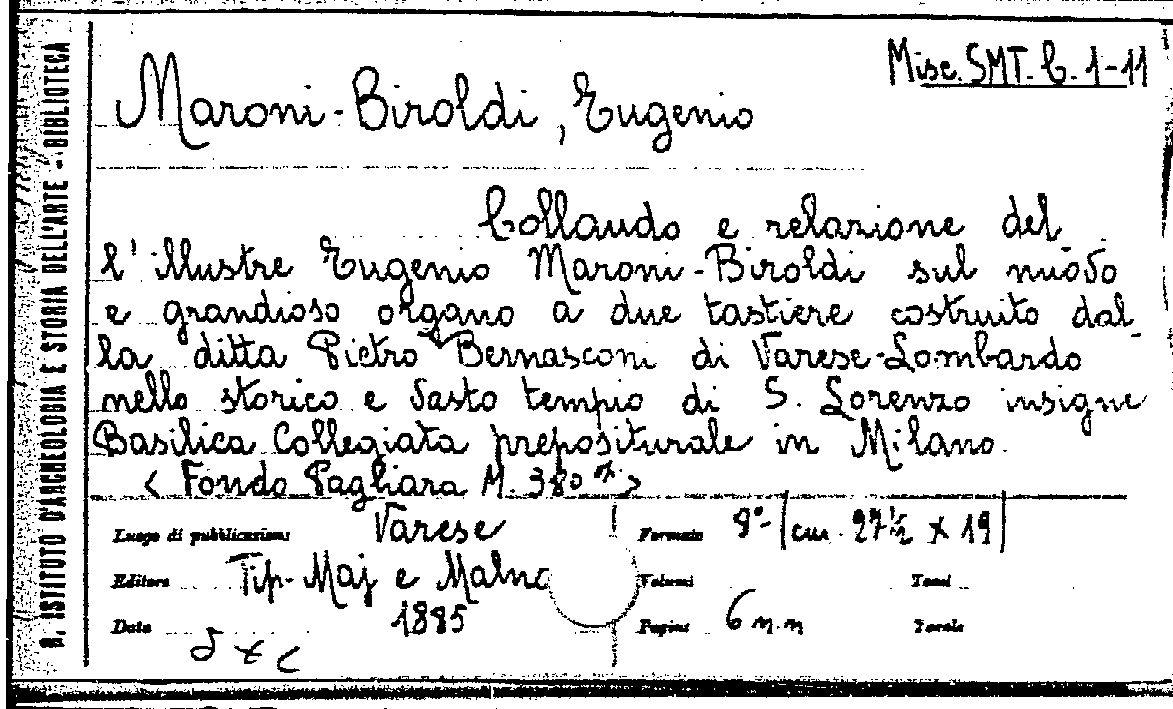 R. ISTITUTO D'ARCHEOLOGIA E STORIA DELL'ARTE - BIBLIOTECA
Misc. SMT. C. 1-11
Maroni-Biroldi, Eugenio
Collaudo e relazione del-
l'illustre Eugenio Maroni-Biroldi sul nuovo
e grandioso organo a due tastiere costruito dal-
la ditta Pietro Bernasconi di Varese-Lombardo
nello storico e vasto tempio di S. Lorenzo insigne
Basilica Collegiata prepositurale in Milano.
< Fondo Pagliara M. 380 >
Luogo di pubblicazione Varese Formato 8°- (cm. 27½ x 19)
Editore Tip. Maj e Malna Volumi Tomi
Data 1885 Pagine 6 n.n Tavole